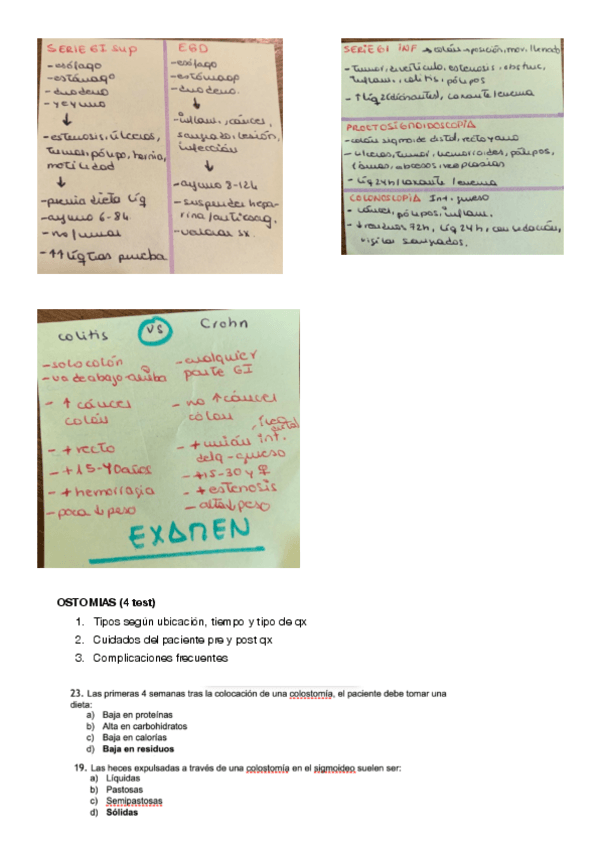 SERIE GI sup
-esófago
-estómago
-duodeno
-yeyuno
↓
-estenosis, úlceras,
tumor, pólipo, hernia,
motilidad
↓
-previa dieta líq
-ayuno 6-8h
-no fumar
-↑↑ líq tras prueba
EGD
-esófago
-estómago
-duodeno.
↓
-inflam., cáncer,
sangrado, lesión,
infección
↓
-ayuno 8-12h
-suspender hepa-
rina/anticoag.
-valorar sx.
SERIE GI INF → colon → posición, mov. llenado
-tumor, divertículo, estenosis, obstruc,
inflam., colitis, pólipos
-↑líq laxante/enema
PROCTOSIGNOIDOSCOPIA
-colon sigmoide distal, recto y ano
-úlceras, tumor, hemorroides, pólipos,
fisuras, abscesos, neoplasias
-líq 24h/laxante/enema
COLONOSCOPIA Int. grueso
-cáncer, pólipos, inflam.
-↓residuos 72h, líq 24h, con sedación,
vigilar sangrados.
colitis vs Crohn
-solo colón
-va de abajo-arriba
-↑ cáncer
colón
-+ recto
-+15-40años
-+hemorragia
-poca ↓ peso
-cualquier
parte GI
-no ↑cáncer
colón
-+unión int.
delg-grueso
-+15-30 y ♀
-+estenosis
-alta ↓ peso
EXAMEN
OSTOMIAS (4 test)
1. Tipos según ubicación, tiempo y tipo de qx
2. Cuidados del paciente pre y post qx
3. Complicaciones frecuentes
23. Las primeras 4 semanas tras la colocación de una colostomía, el paciente debe tomar una
dieta:
a) Baja en proteínas
b) Alta en carbohidratos
c) Baja en calorías
d) Baja en residuos
19. Las heces expulsadas a través de una colostomía en el sigmoideo suelen ser:
a) Líquidas
b) Pastosas
c) Semipastosas
d) Sólidas